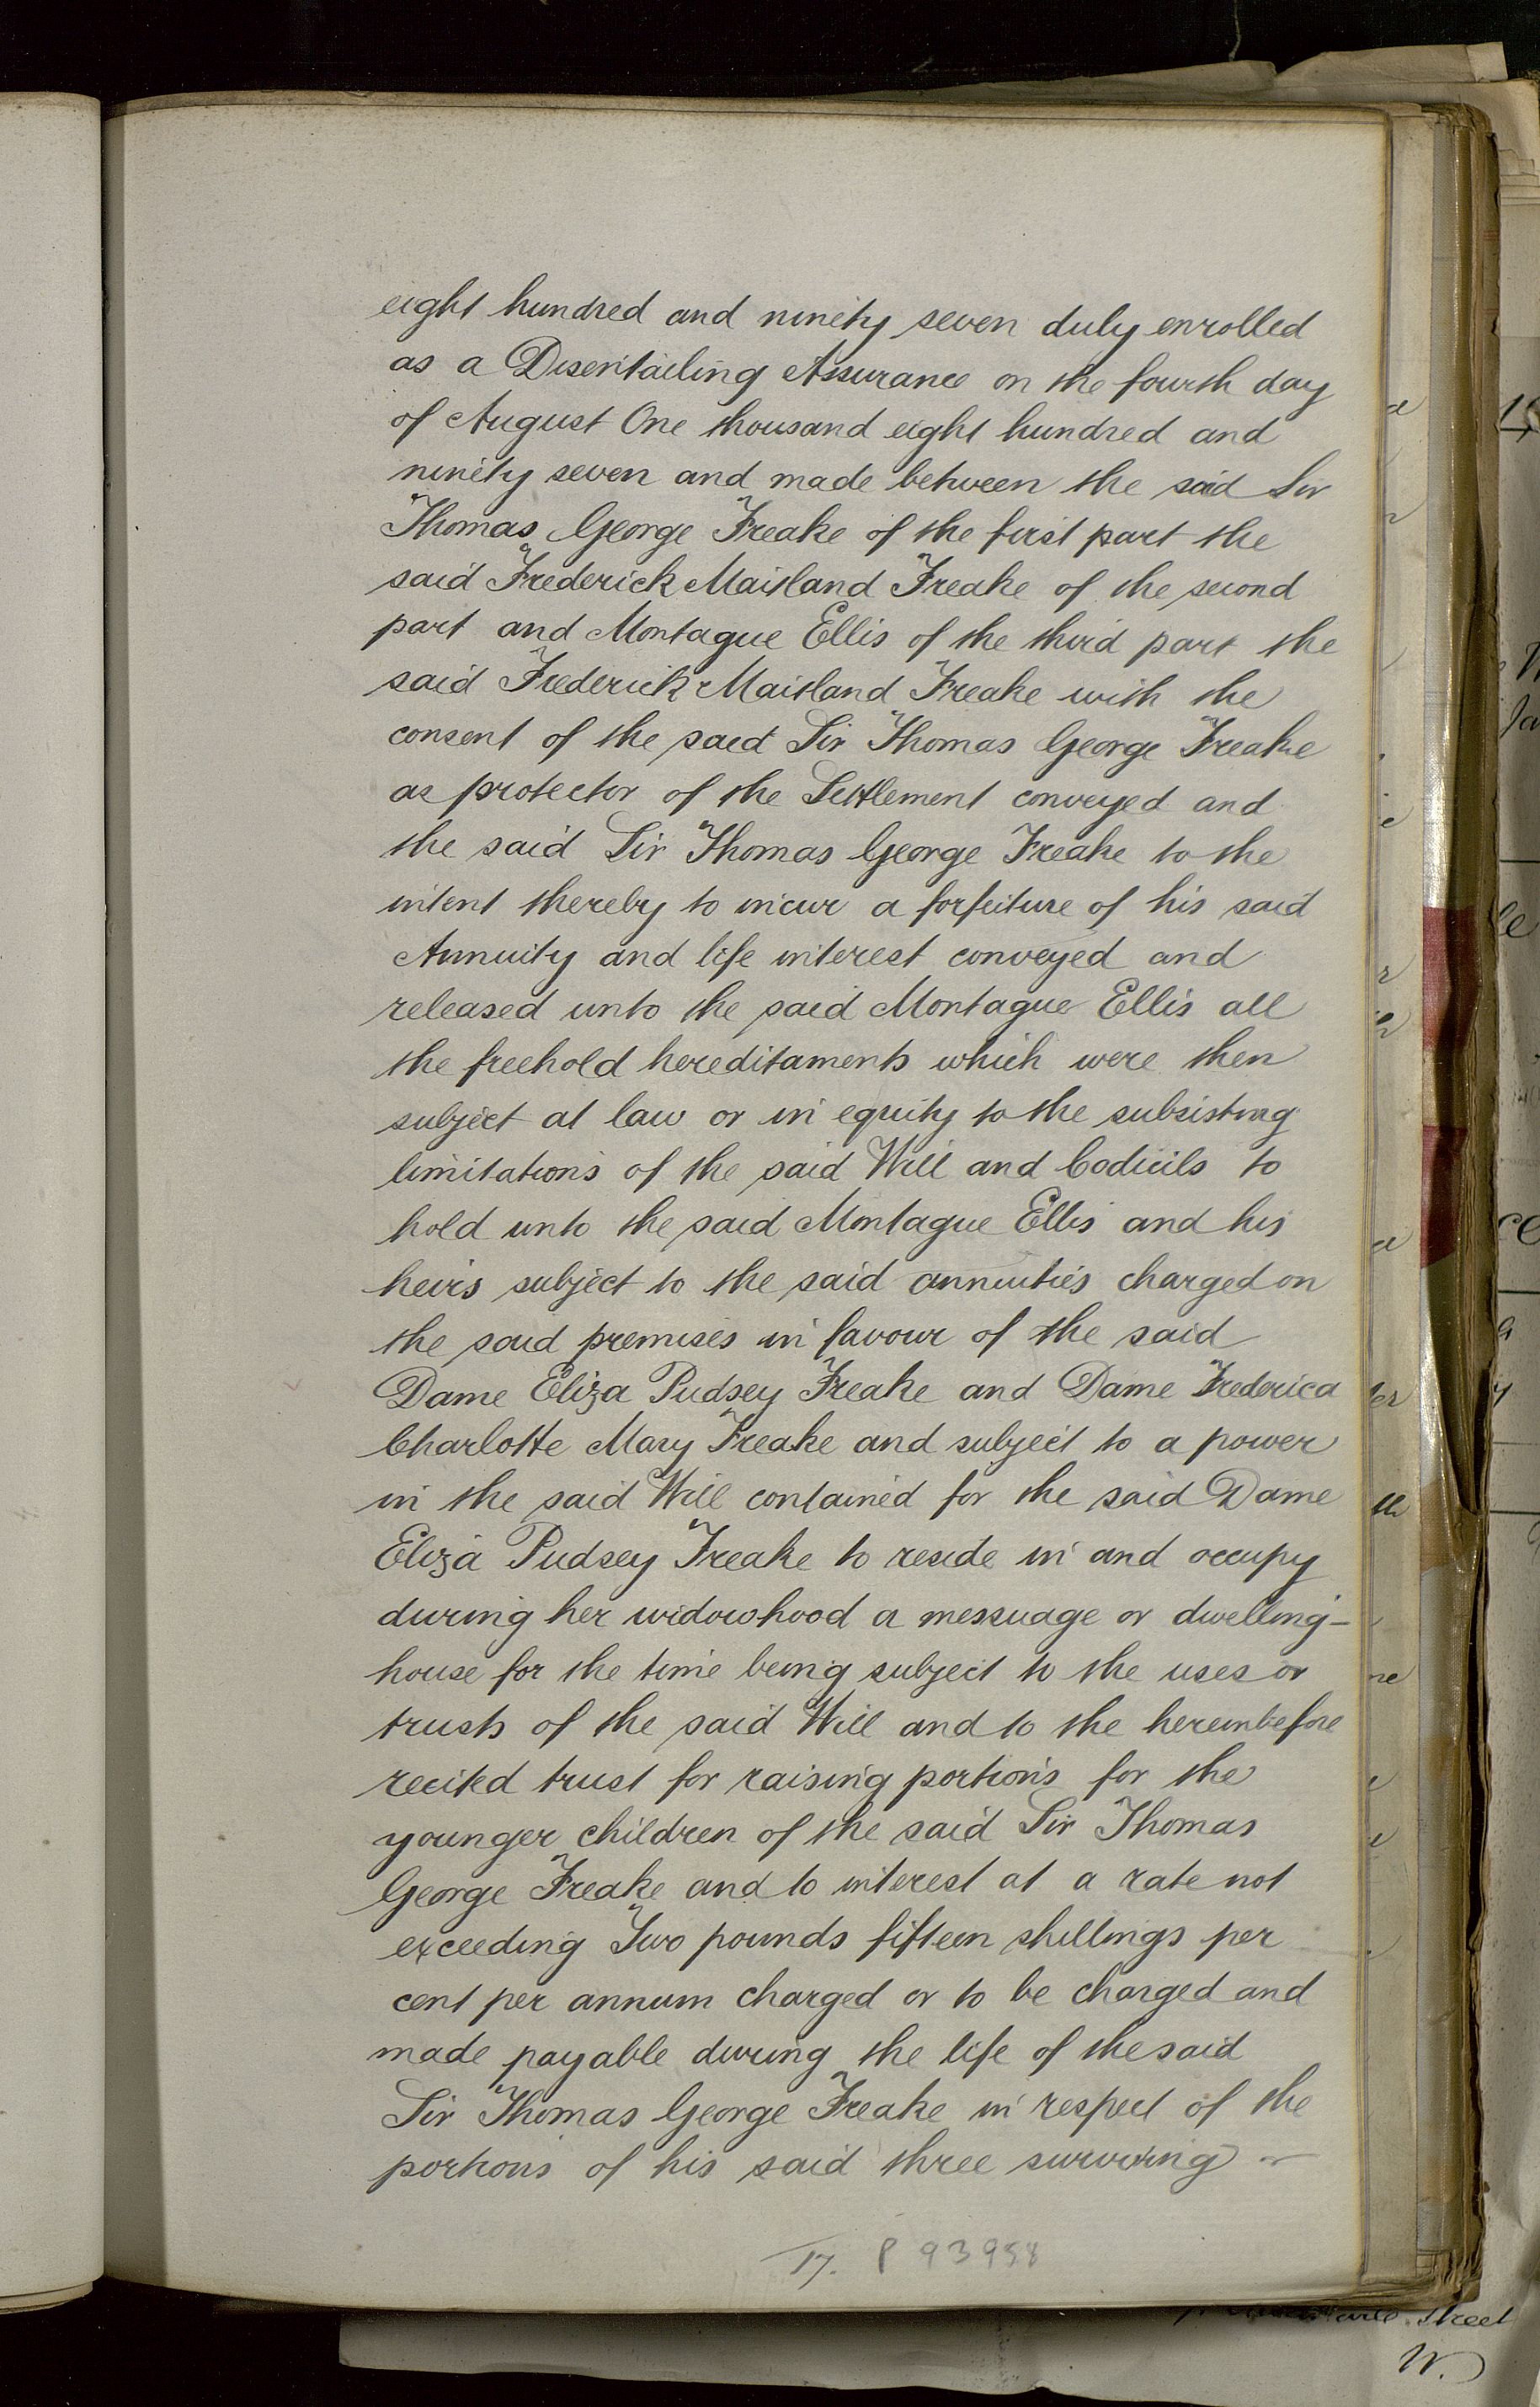 eight hundred and ninety seven duly enrolled
as a Disentailing Assurance on the fourth day
of August One thousand eight hundred and
ninety seven and made between the said Sir
Thomas George Freake of the first part the
said Frederick Maitland Freake of the second
part and Montague Ellis of the third part the
said Frederick Maitland Freake with the
consent of the said Sir Thomas George Freake
as protector of the Settlement conveyed and
the said Sir Thomas George Freake to the
intent thereby to incur a forfeiture of his said
Annuity and life interest conveyed and
released unto the said Montague Ellis all
the freehold hereditaments which were then
subject at law or in equity to the subsisting
limitations of the said Will and Codicils to
hold unto the said Montague Ellis and his
heirs subject to the said annuities charged on
the said premises in favour of the said
Dame Eliza Pudsey Freake and Dame Frederica
Charlotte Mary Freake and subject to a power
in the said Will contained for the said Dame
Eliza Pudsey Freake to reside in and occupy
during her widowhood a messuage or dwelling-
house for the time being subject to the uses or
trusts of the said Will and to the hereinbefore
recited trust for raising portions for the
younger children of the said Sir Thomas
George Freake and to interest at a rate not
exceeding Two pounds fifteen shillings per
cent per annum charged or to be charged and
made payable during the life of the said
Sir Thomas George Freake in respect of the
portions of his said three surviving
17. P 93958
Street
W.